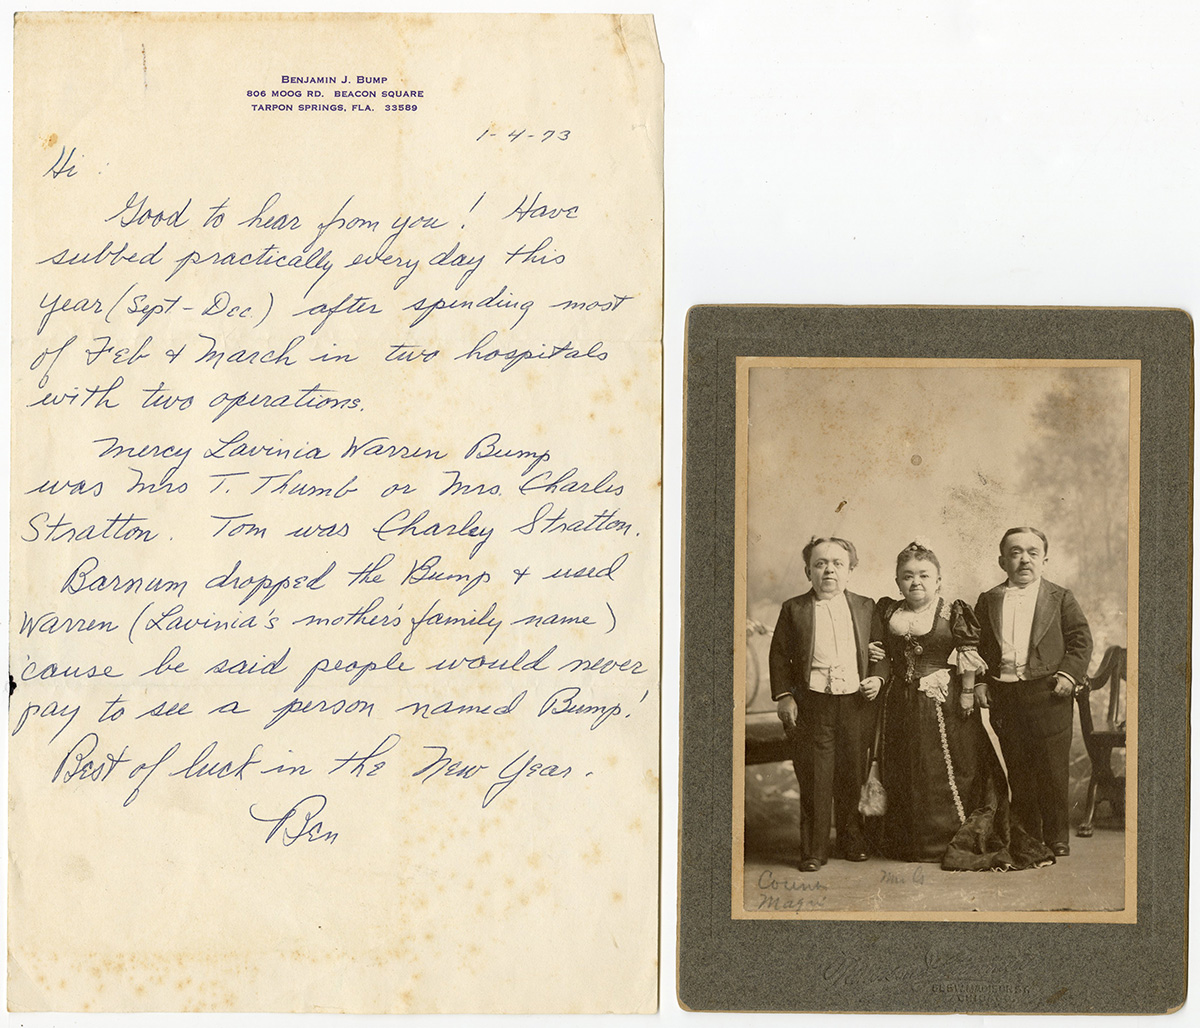 BENJAMIN J. BUMP
806 MOOG RD. BEACON SQUARE
TARPON SPRINGS, FLA. 33589
1-4-73
Hi
Good to hear from you! Have
subbed practically every day this
year (Sept-Dec.) after spending most
of Feb & March in two hospitals
with two operations.
Mercy Lavinia Warren Bump
was Mrs T. Thumb or Mrs. Charles
Stratton. Tom was Charley Stratton.
Barnum dropped the Bump & used
Warren (Lavinia's mother's family name)
'cause he said people would never
pay to see a person named Bump!
Best of luck in the New Year.
Ben
Count
Magri
CHICAGO.